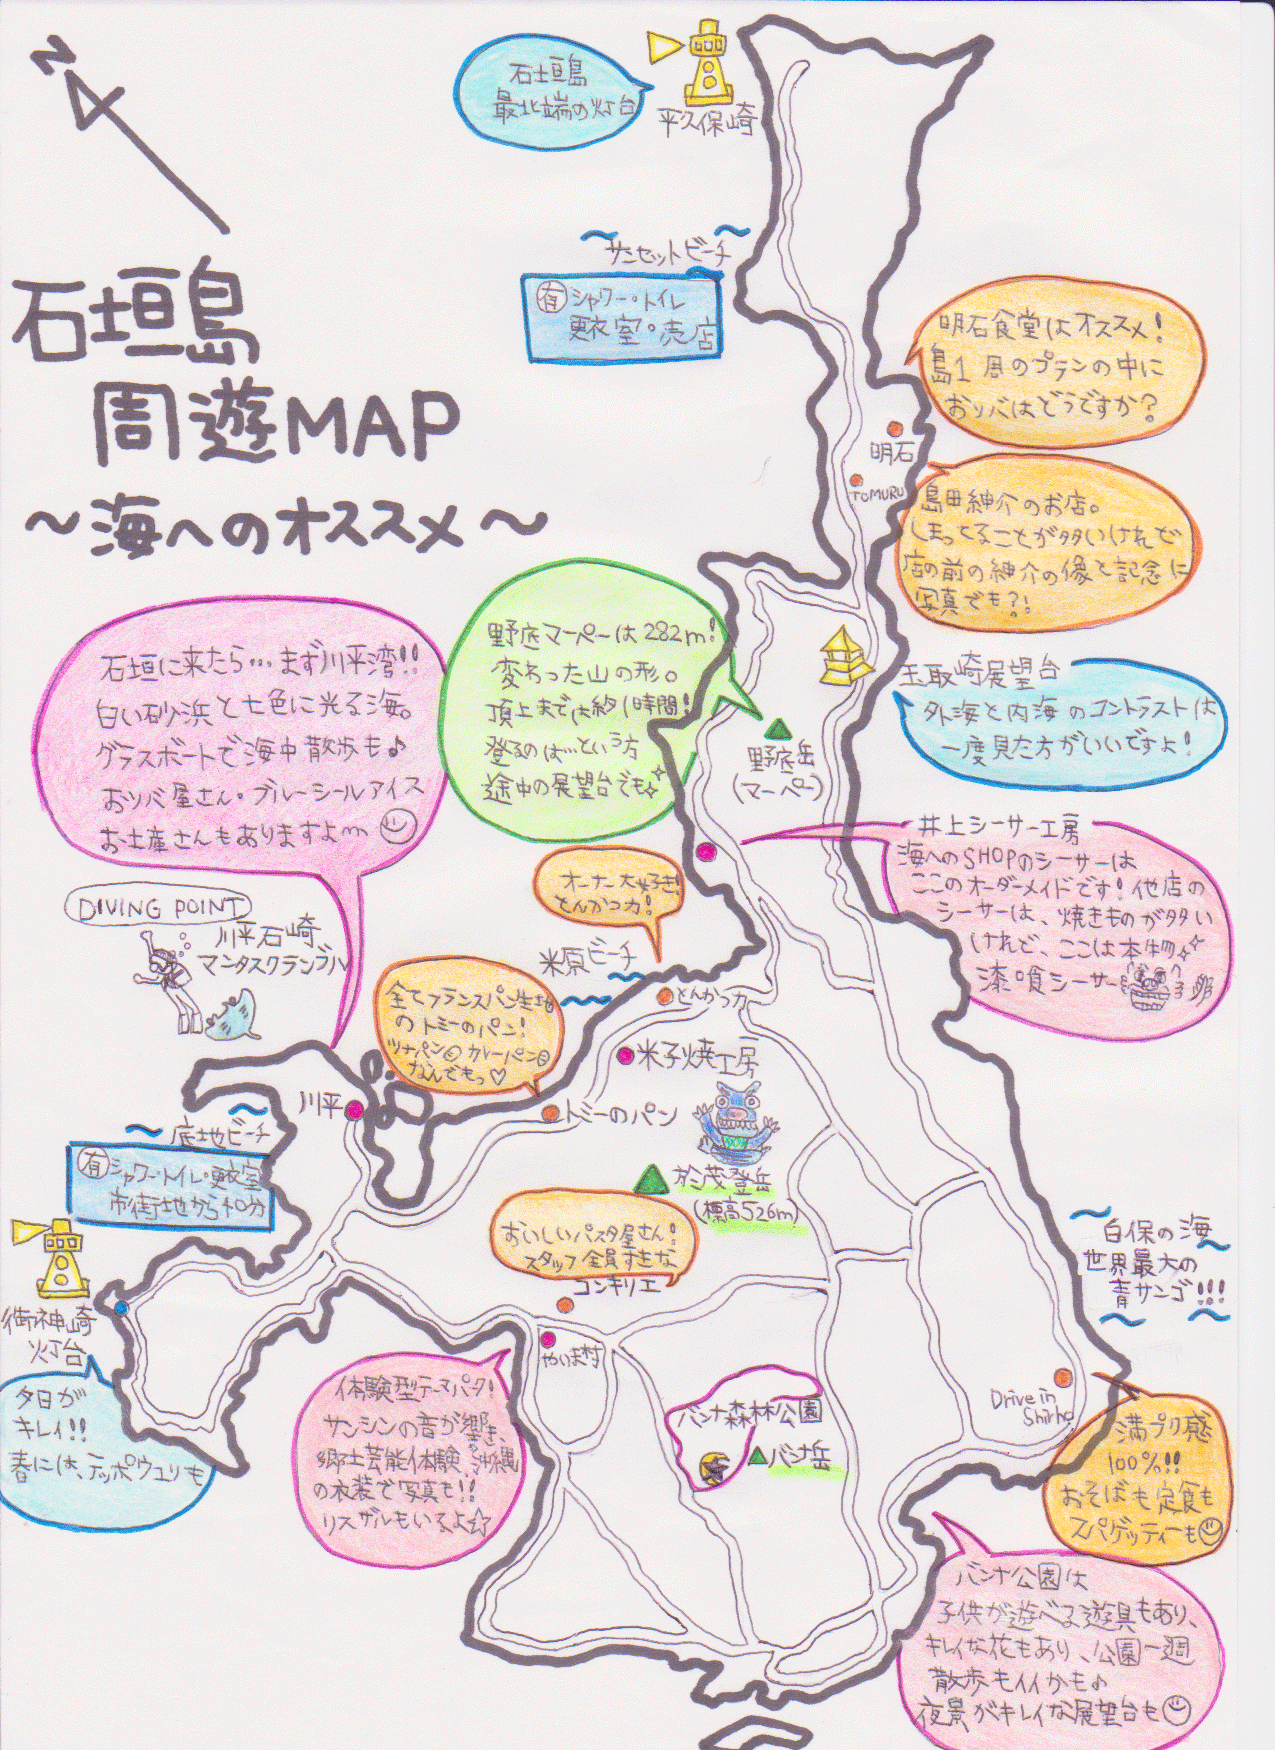 N
石垣島
周遊MAP
～海へのオススメ～
石垣島
最北端の灯台
平久保崎
サンセットビーチ
有 シャワー・トイレ
更衣室・売店
明石食堂はオススメ！
島1周のプランの中に
おソバはどうですか？
明石
TOMURU
島田紳介のお店。
しまってることが多いけれど
店の前の紳介の像と記念に
写真でも?!
野底マーペーは282m！
変わった山の形。
頂上までは約1時間！
登るのは…という方
途中の展望台でも
野底岳
(マーペー)
玉取崎展望台
外海と内海のコントラストは
一度見た方がいいですよ！
石垣に来たら…まず川平湾!!
白い砂浜と七色に光る海。
グラスボートで海中散歩も♪
おソバ屋さん・ブルーシールアイス
お土産さんもありますよm
井上シーサー工房
海へのSHOPのシーサーは
ここのオーダーメイドです！他店の
シーサーは、焼きものが多い
けれど、ここは本物
漆喰シーサー
オーナー大好き！
とんかつ力！
DIVING POINT
川平石崎
マンタスクランブル
米原ビーチ
とんかつ力
全てフランスパン生地
のトミーのパン！
ツナパン カレーパン
なんでもっ♡
米子焼工房
トミーのパン
川平
底地ビーチ
有 シャワー・トイレ・更衣室
市街地から40分
於茂登岳
(標高526m)
おいしいパスタ屋さん！
スタッフ全員すきな
コンキリエ
白保の海
世界最大の
青サンゴ!!!
御神崎
灯台
夕日が
キレイ!!
春には、テッポウユリも
やいま村
体験型テーマパーク！
サンシンの音が響き、
郷土芸能体験や沖縄
の衣装で写真も!!
リスザルもいるよ☆
バンナ森林公園
バンナ岳
Drive in
Shiraho
満プク感
100%!!
おそばも定食も
スパゲッティーも
バンナ公園は
子供が遊べる遊具もあり、
キレイな花もあり、公園一週
散歩もイイかも♪
夜景がキレイな展望台も